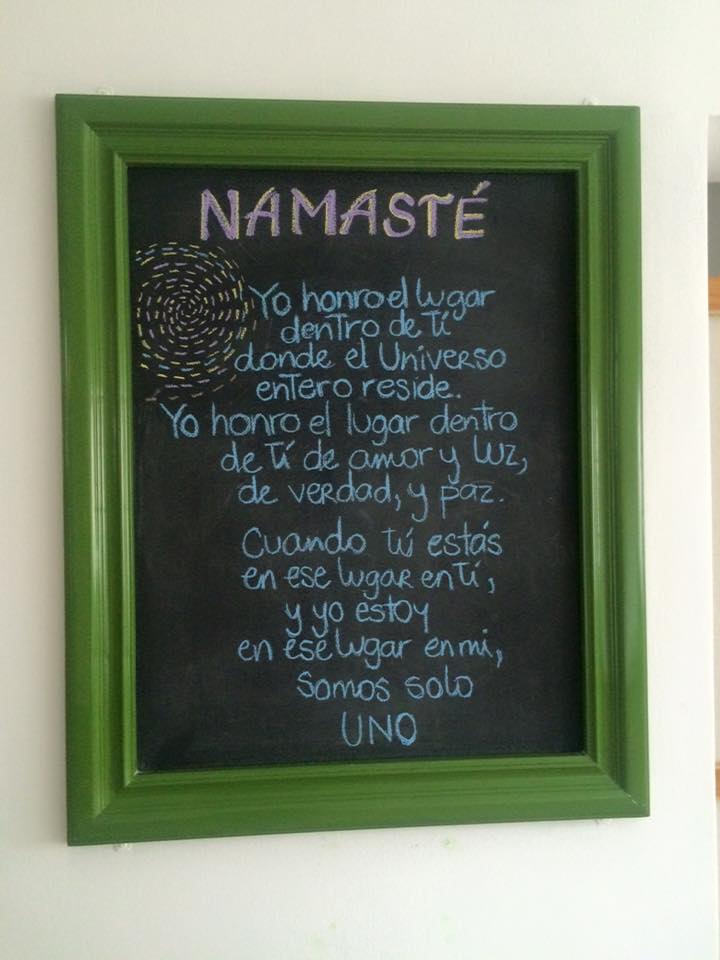 NAMASTÉ
Yo honro el lugar
dentro de tí
donde el Universo
entero reside.
Yo honro el lugar dentro
de tí de amor y luz,
de verdad, y paz.
Cuando tú estás
en ese lugar en tí,
y yo estoy
en ese lugar en mi,
somos solo
UNO